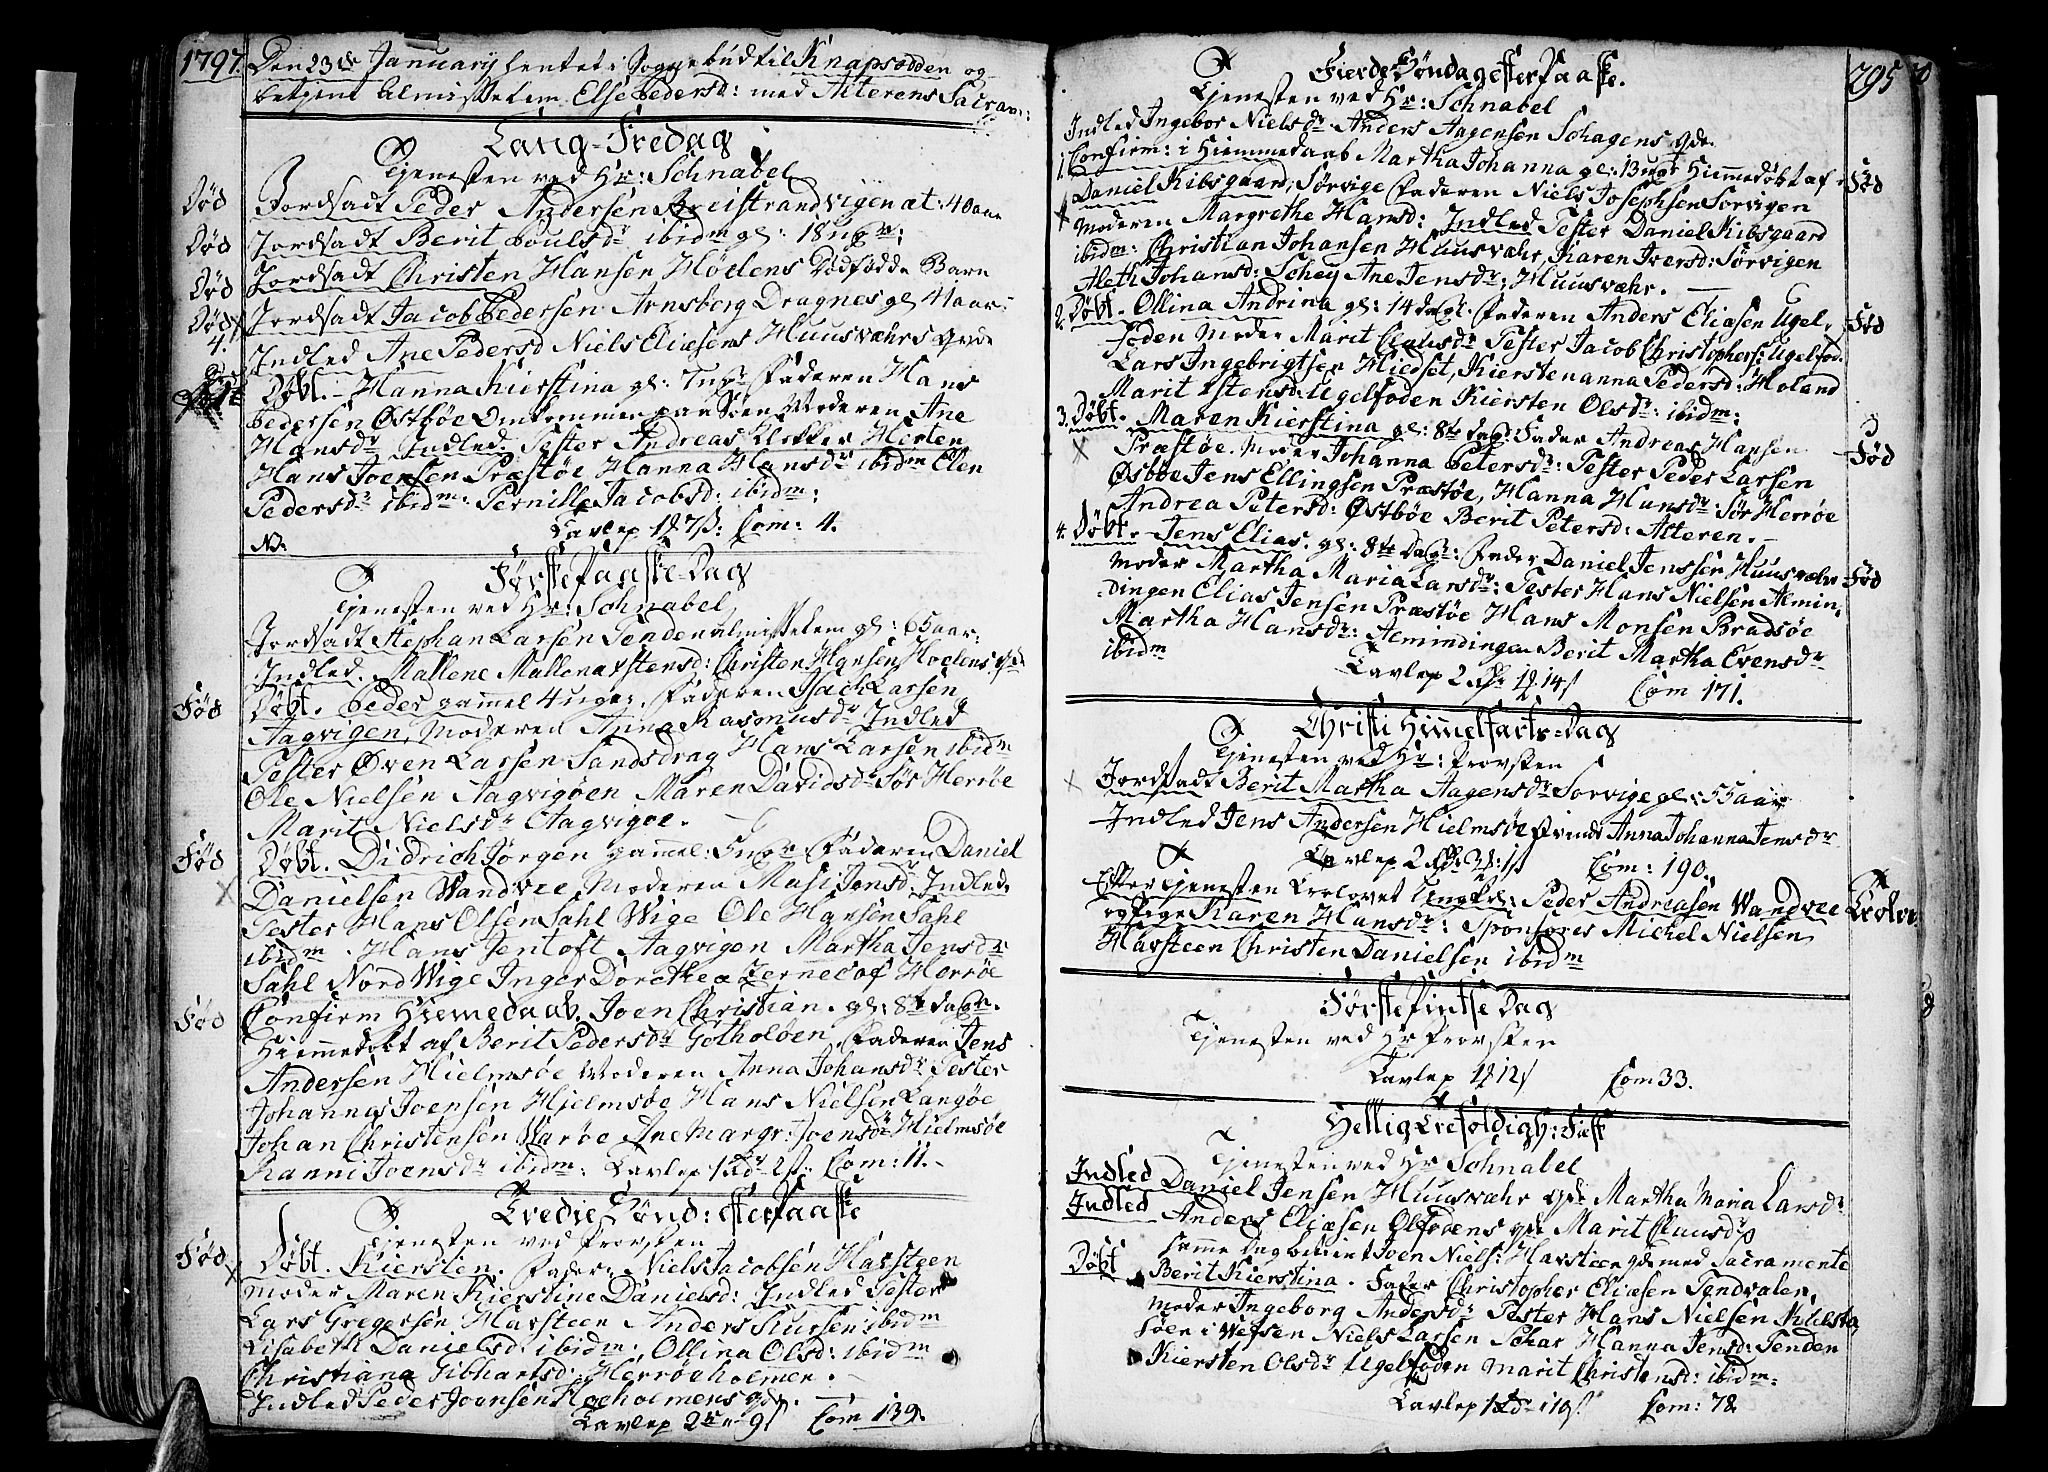 1797.
Den 23de January hentet i Sognebud til Knapsødden og
betjent Almisselem Else Pedersd: med Alterens Sacram:
Lang-Fredag
Tjenesten ved Hr: Schnabel
Død Jordsadt Peder Andersen Breistrandvigen æt: 40 aar
Død Jordsadt Berit Poulsdr ibidm gl: 18 ugr:
Død Jordsadt Christen Hansen Høelens Dødfødde Barn
Død Jordsadt Jacob Pedersen Arnsberg Dragnes gl 41 aar
4.
Indled Ane Pedersd Niels Eliæsens Huusværs qvde
Døbt. Hanna Kierstina gl: 7 ugr Faderen Hans
Pedersen Østbøe Omkommen paa Søen Moderen Ane
Hansdr Indled. Tester Andreas Klekken Herten
Hans Joensen Præstøe Hanna Hansdr ibidm Elen
Pedersdr ibidm: Pernille Jacobsd: ibidm:
Tavlep 1 # 7 ß: Com: 4.
NB.
Første Paaske-Dag
Tjenesten ved Hr: Schnabel
Jordsadt Stephan Larsen Tenden almisselem gl: 65 aar:
Indled. Mallene Ystensd: Christen Hansen Hoelens qde
Født Døbt. Peder gammel 4 uger. Faderen Isach Larsen
Aagvigen, Moderen Anna Rasmusdr Indled
Tester Øven Larsen Sandsdrag Hans Larsen ibidm
Ole Nielsen Aagvigøen Maren Davidsdr Sør Herrøe
Marit Nielsdr Aagvigøe.
Fød Døbt. Didrich Jørgen gammel: 5 ugr Faderen Daniel
Danielsen Wandvee Moderen Masi Jensdr Indled.
Tester Hans Olsen Sahl Wige Ole Hansen Sahl
ibidm. Hans Jentoft Aagvigen Martha Jensdr
Sahl Nord Wige Inger Dorethea Zernec af Herrøe
Fød Confirm Hiemedaab. Joen Christian. gl: 8te dagr.
Hiemmedøbt af Berit Pedersdr Gotholoen. Faderen Jens
Andersen Hielmsøe Moderen Anna Johansdr Tester
Johannes Joensen Hjelmsøe Hans Nielsen Langøe
Johan Christensen Warøe Ane Margr: Joensdr Hielmsøe
Hanni Joensdr ibidm: Tavlep 1 # 2 ß. Com: 11.
Tredie Sønd: efter Paaske
Tjenesten ved Provsten
Fød Døbt. Kiersten. Fader: Niels Jacobsen Harsteen
Moder Maren Kierstine Danielsd: Indled Tester
Lars Gregersen Harsteen Anders Iversen ibidm
Lisabeth Danielsd: ibidm: Ollina Olsd: ibidm
Christiana Gibhartsd: Herrøeholmen.
Indled Peder Joensen Høeholmens qde.
Tavlep 2 # 9 ß Com 139.
295
Fierde Søndag efter Paaske.
Tjenesten ved Hr: Schnabel
Indled Ingebor Nielsdr Anders Aagensen Schagens qde.
1. Confirm: i Hiemmedaab Martha Johanna gl: 13 ugr Hiemmedøbt af Fød
Daniel Kibsgaard, Sørvige Faderen Niels Josephsen Sorvigen
Moderen Margrethe Hansd: Indled Tester Daniel Kibsgaard
ibidm: Christian Johansen Huusvæhr, Karen Iversd: Sørvigen
Aleth Johansd: Schey Ane Jensdr; Huusvæhr.
2. Døbt. Ollina Andrina gl: 14 dagr. Faderen Anders Eliæsen Ugel- Fød
foden Moder Marit Clausdr Tester Jacob Christophers: Ugelfod.
Lars Ingebrigtsen Hiedset, Kierstenanna Pedersd: Holand
Marit Ystensd: Ugelfoden Kiersten Olsdr: ibidm:
3. Døbt. Maren Kierstina gl: 8te dagr: Fader Andreas Hansen
Præstøe. Moder Johanna Petersdr: Tester Peder Larsen Fød
Østbøe Jens Ellingsen Præstøe, Hanna Hansdr Sør Herrøe
Andrea Petersd: Østbøe Berit Petersd: Alteren.
4. Døbt. Jens Elias. gl: 8te dagr: Fader Daniel Jenssen Huusvæhr Fød
Moder Martha Maria Larsdr: Tester Hans Nielsen Almin-
dingen Elias Jensen Præstøe Hans Monsen Bradsøe
Martha Hansdr: Almindingen Berit Martha Evensdr
ibidm
Tavlep 2 # 14 ß Com 171.
Christi Himmelfarts-Dag
Tjenesten ved Hr: Provsten
Jordsadt Berit Martha Aagensdr Sorvige gl: 55 aar
Indled Jens Andersen Hielmsøe qvinde Anna Johanna Jensdr
Tavlep 2 # 1 ß Com: 190.
Efter Tjenesten Trolovet Ungkl: Peder Andreasen Wandvee Trolov:
og Pige Karen Hansdr: Sponsores Michel Nielsen
Harsteen Christen Danielsen ibidm
Første Pintse Dag
Tjenesten ved Hr Provsten
Tavlep 12 ß Com 33.
Hellig Trefoldigh: Fæst
Tjenesten ved Hr Schnabel
Indled Daniel Jensen Huusvæhr qde Martha Maria Larsdr
Indled Anders Eliæsen Olfodens qde Marit Clausdr
Samme Dag betient Joen Niels: Harsteen qde med Sacramente
Døbt Berit Kierstina. Fader Christopher Eliæsen Tendvalen,
Moder Ingeborg Andersdr Tester Hans Nielsen
søen i Wefsen Niels Larsen Schar Hanna Jensd: Tenden
Kiersten Olsdr Ugelfoden Marit Christensd: ibidm:
Tavlep 1 # 10 ß Com: 78.